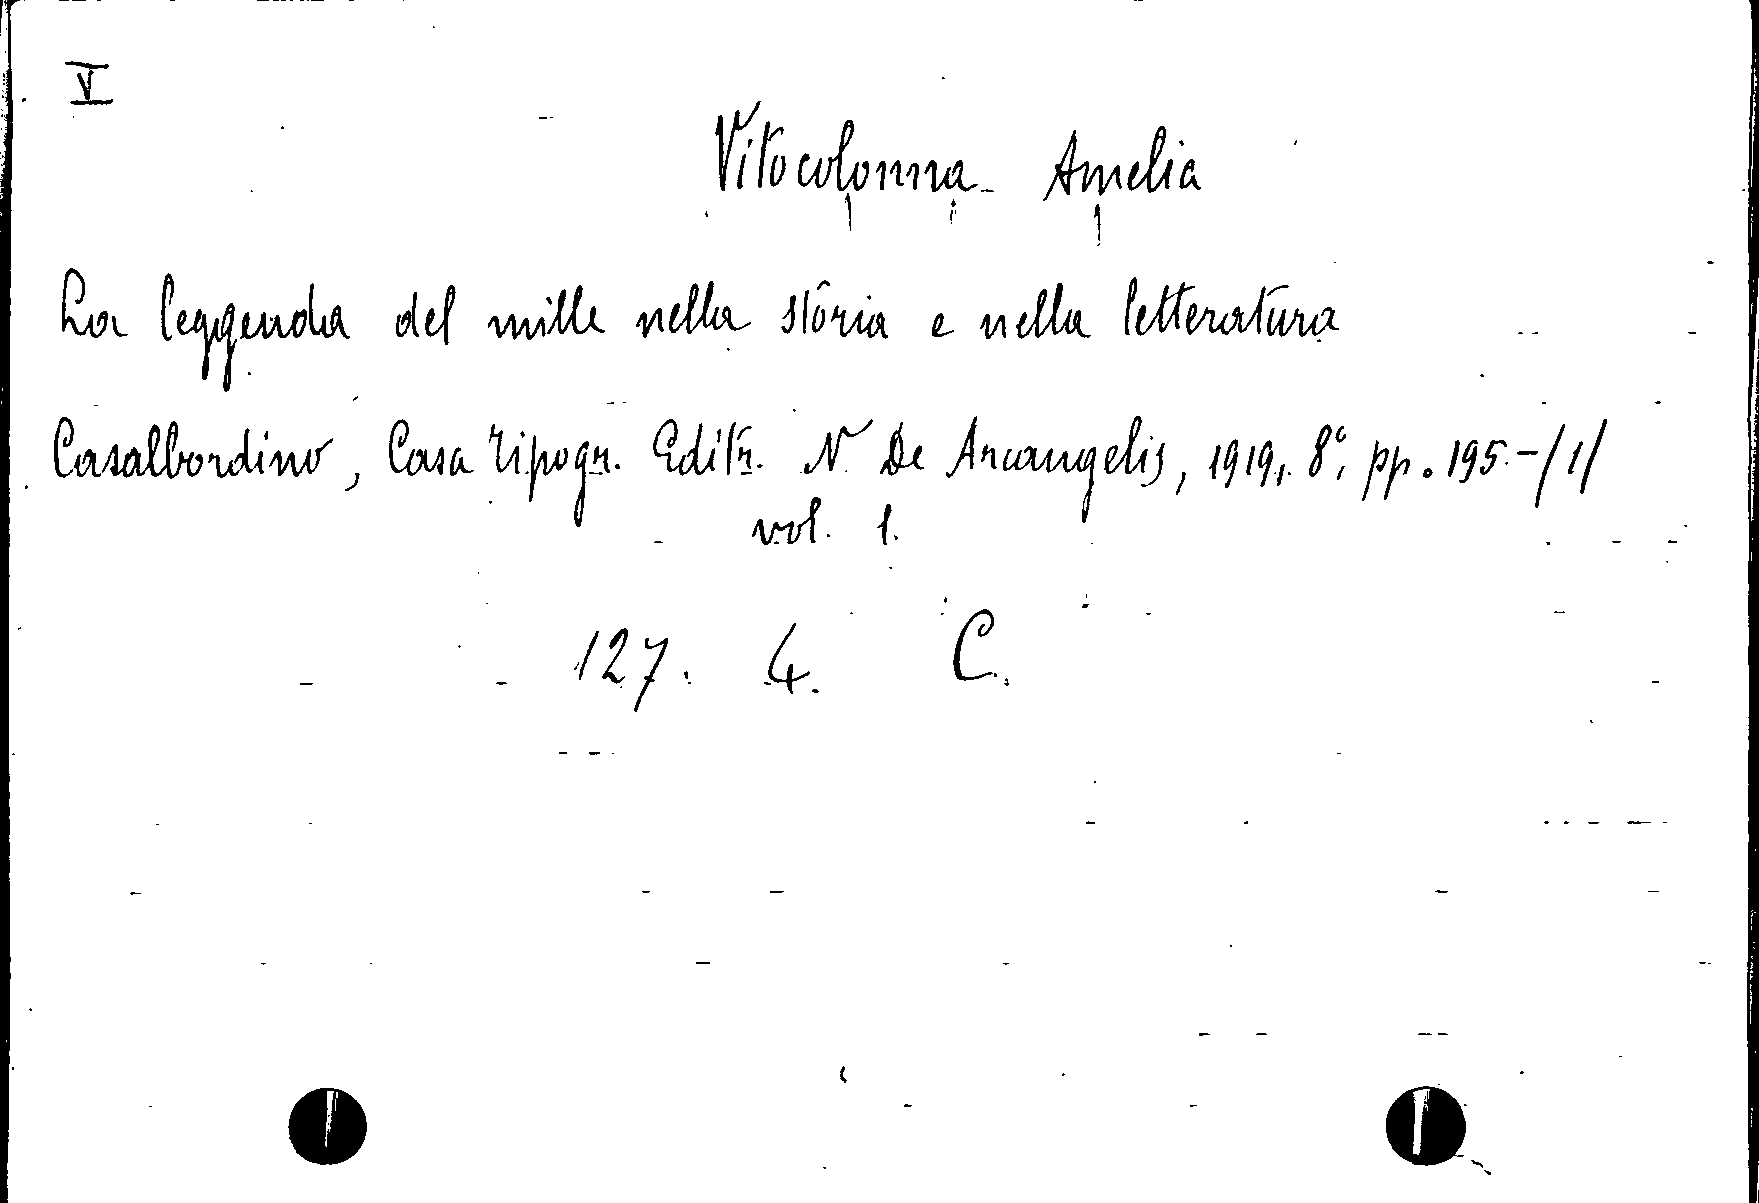 V
Vitocolonna Amelia
La leggenda del mille nella stôria e nella letteratura
Casalbordino, Casa Tipogr. Editr. N. De Arcangelis, 1919, 8°, pp. 195-/1/
vol. 1.
127. 4. C.